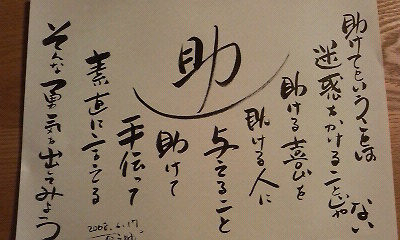 助
助けてということは
迷惑をかけることじゃ
ない
助ける喜びを
助ける人に
与えること
助けて
手伝って
素直に言える
そんな勇気を出してみよう